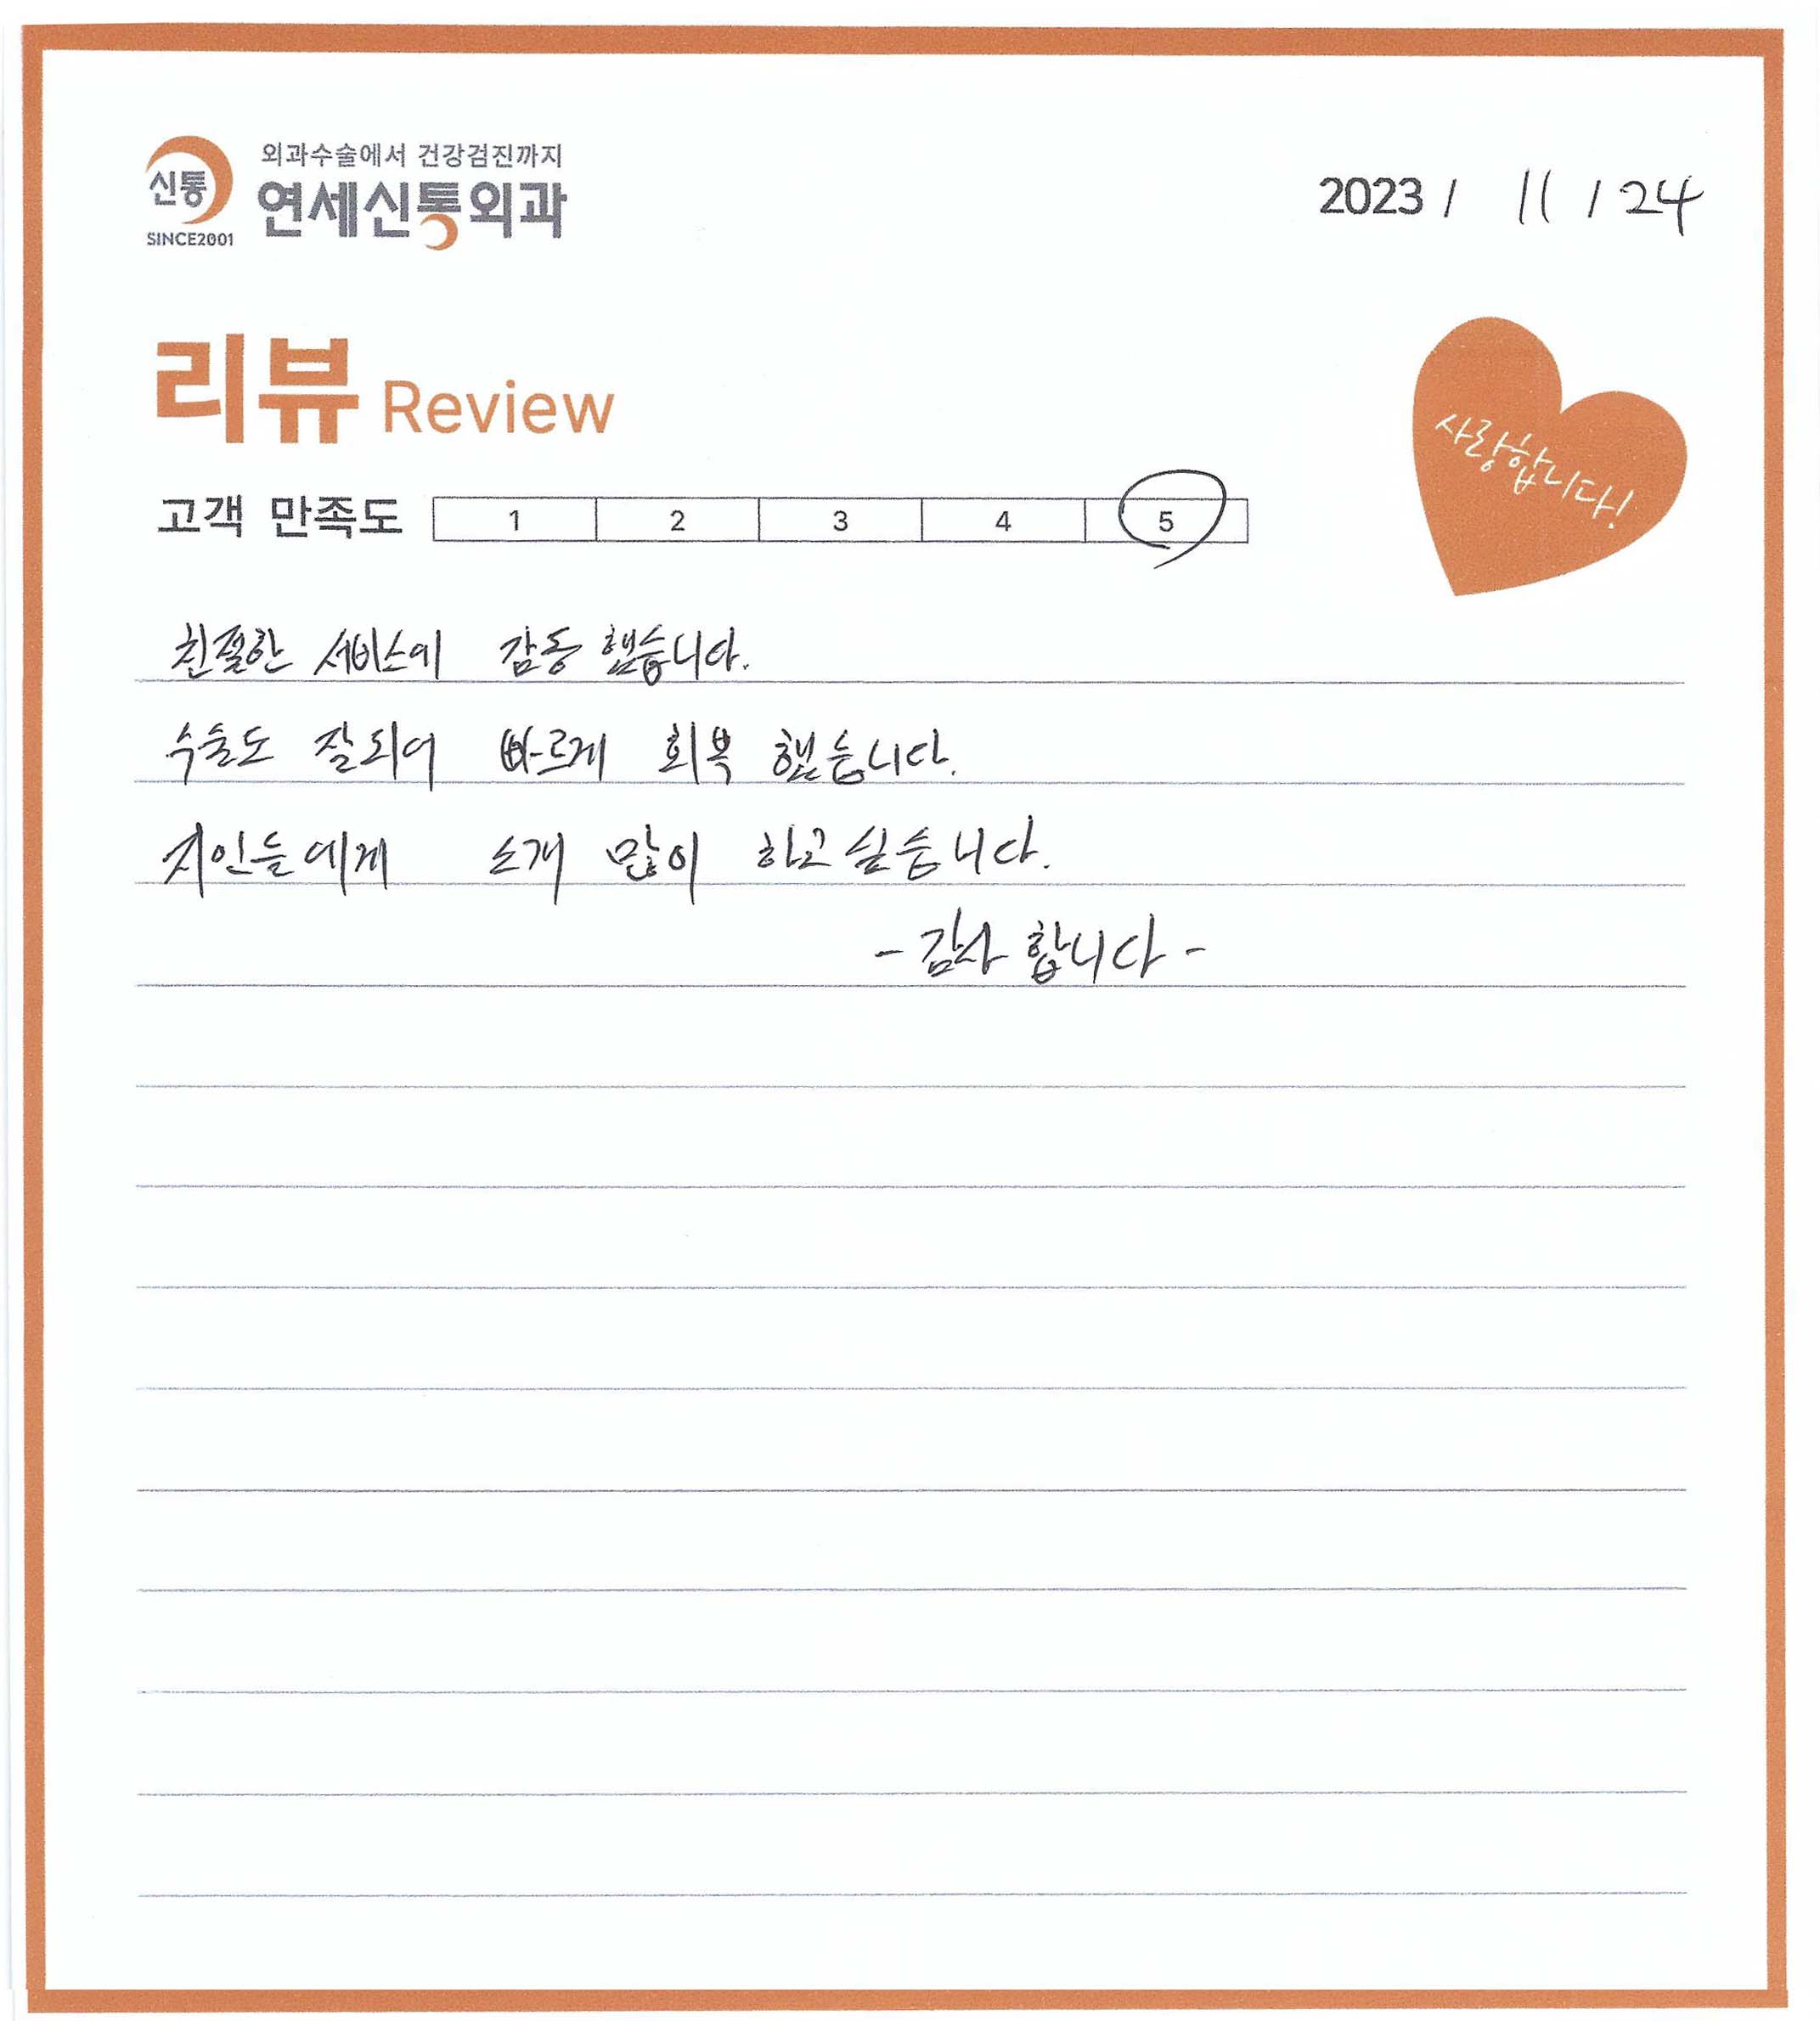 신통
SINCE2001
외과수술에서 건강검진까지
연세신통외과
2023 / 11 / 24
리뷰 Review
사랑합니다!
고객 만족도 1 2 3 4 5
친절한 서비스에 감동 했습니다.
수술도 잘되어 빠르게 회복 했습니다.
지인들에게 소개 많이 하고싶습니다.
- 감사 합니다 -